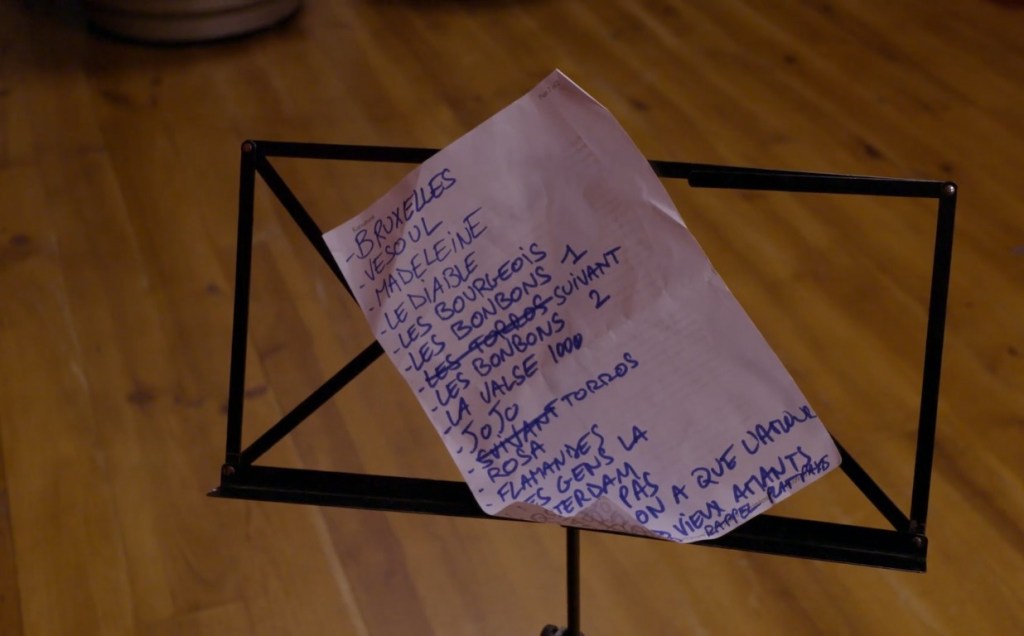 - BRUXELLES
- VESOUL
- MADELEINE
- LE DIABLE
- LES BOURGEOIS
- LES BONBONS 1
- LES TORROS SUIVANT
- LES BONBONS 2
- LA VALSE 1000
- JOJO
- SUIVANT TORROS
- ROSA
- FLAMANDES
ES GENS LA
TERDAM
PAS
ON A QUE L'AMOUR
VIEUX AMANTS
RAPPEL PLAT PAYS